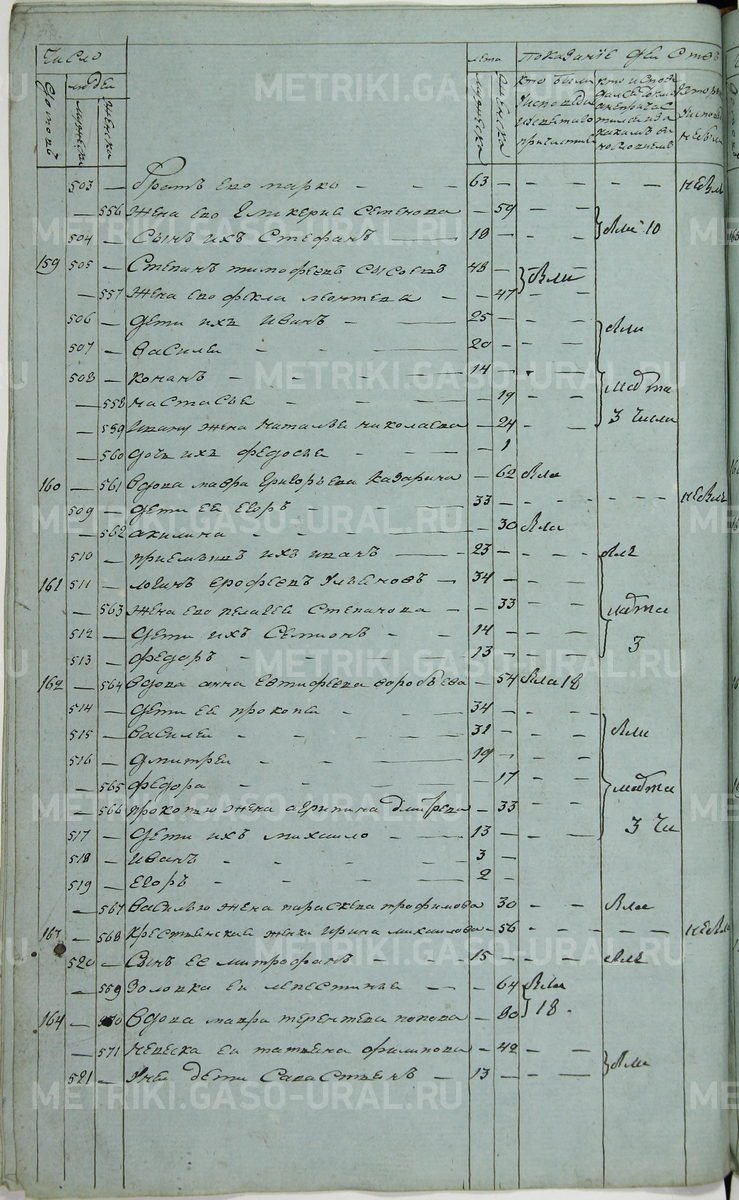 Число
Лета
Показаніе действ
дворовъ
людей
мужеска
женска
мужеска
женска
кто были
у исповеди
503 — братъ его марко — — — 63 — — — — — не былъ
— 556 жена его Гликерия Семенова — 59 — —
504 — Сынъ ихъ Стефанъ — 18 — — — были 10
159 505 — Степанъ тимофеевъ Сысоевъ 48 — были
— 557 жена его фекла леонтева — — 47 — —
506 — дети ихъ иванъ — — 25 — — — были
507 — василеи — — — 20 — — —
508 — конанъ — — — 14 — — — марта
— 558 настасья — — — 19 — — 3 числа
— 559 ивану жена наталья николаева — 24 — —
— 560 дочь ихъ федосья — — 1
160 — 561 вдова мавра григорьева казарина — 62 была
509 — дети ее егоръ — — — 33 — — — — — не былъ
— 562 акилина — — — — 30 были
510 — приемышъ ихъ иванъ — 23 — — — былъ
161 511 — логинъ ерофеевъ ульяновъ — 34 — — —
— 563 жена его пелагея Степанова — — 33 — — марта
512 — дети ихъ Семионъ — — 14 — — —
513 — федоръ — — — 13 — — — 3
162 — 564 вдова анна евтифеева воробьева — 54 была 18
514 — дети ее прокопеи — — 34 — — —
515 — василеи — — — 31 — — — были
516 — дмитреи — — — 19 — — —
— 565 федора — — — — 17 — — марта
— 566 прокопью жена агрипина дмитрева — 33 — —
517 — дети ихъ михаило — 13 — — — 3 чи
518 — иванъ — — — 3 —
519 — егоръ — — — 2 —
— 567 василью жена параскева трофимова 30 — — была
163 — 568 крестьянская жонка ирина михаилова — 56 — — — — не была
520 — Сынъ ее митрофанъ — 15 — — — былъ
— 569 золовка ея — — 64 были
164 — 570 вдова мавра терентева попова — 80 18.
— 571 невеска ея татьяна филипова — 42 — — были
521 — у неи дети Савастьянъ — 13 — — —
METRIKI.GASO-URAL.RU